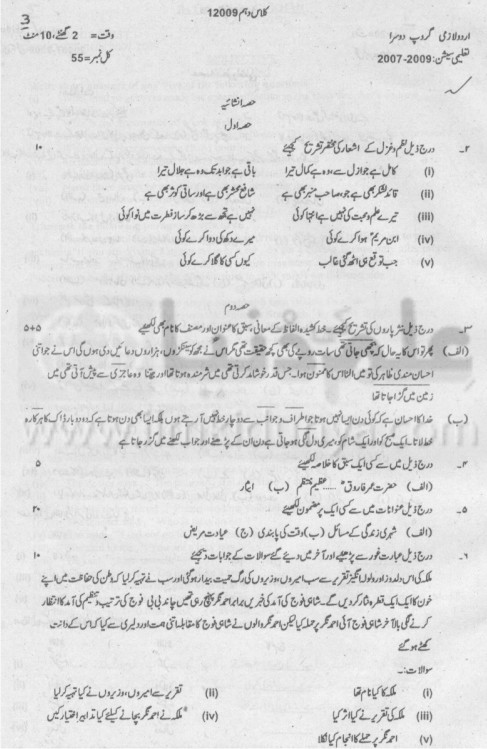 3
کلاس دہم 12009
اردو لازمی گروپ دوسرا
وقت = 2 گھنٹے، 10 منٹ
تعلیمی سیشن: 2007-2009
کل نمبر = 55
حصہ انشائیہ
حصہ اول
۲۔ درج ذیل نظم و غزل کے اشعار کی مختصر تشریح کیجئے ۱۰
(i) کامل ہے جو ازل سے وہ ہے کمال تیرا باقی ہے جو ابد تک وہ ہے جلال تیرا
(ii) قائد لشکر بھی ہے جو، صاحب منبر بھی ہے شافع محشر بھی ہے اور ساقی کوثر بھی ہے
(iii) تیرے علم و محبت کی نہیں ہے انتہا کوئی نہیں ہے تجھ سے بڑھ کر ساز فطرت میں نوا کوئی
(iv) ابن مریم ہوا کرے کوئی میرے دکھ کی دوا کرے کوئی
(v) جب توقع ہی اٹھ گئی غالب کیوں کسی کا گلا کرے کوئی
حصہ دوم
۳۔ درج ذیل نثر پاروں کی تشریح کیجئے۔ خط کشیدہ الفاظ کے معانی، سبق کا عنوان اور مصنف کا نام بھی لکھیے ۵+۵
(الف) پھر تو اس کا یہ حال کہ بچھی جاتی تھی سات روپے کی بھی کچھ حقیقت تھی مگر اس نے مجھ کو سینکڑوں، ہزاروں دعائیں دی ہوں گی اس نے جو اتنی
احسان مندی ظاہر کی تو میں الٹا اس کا ممنون ہوا۔ جس قدر خوشامد کرتی تھی میں شرمندہ ہوتا تھا اور جتنا وہ عاجزی سے پیش آتی تھی میں
زمین میں گڑا جاتا تھا
(ب) خدا کا احسان ہے کہ کوئی دن ایسا نہیں ہوتا جو اطراف و جوانب سے دو چار خط نہیں آ رہتے ہوں بلکہ ایسا بھی دن ہوتا ہے کہ دو دو بار ڈاک کا ہرکارہ
خط لاتا۔ ایک صبح کو اور ایک شام کو میری دل لگی ہو جاتی ہے دن ان کے پڑھنے اور جواب لکھنے میں گزر جاتا ہے
۴۔ درج ذیل میں سے کسی ایک سبق کا خلاصہ لکھیے ۵
(الف) حضرت عمر فاروقؓ ..... عظیم منتظم (ب) ایثار
۵۔ درج ذیل عنوانات میں سے کسی ایک پر مضمون لکھیے ۲۰
(الف) شہری زندگی کے مسائل (ب) وقت کی پابندی (ج) عیادت مریض
۶۔ درج ذیل عبارت غور سے پڑھیے اور آخر میں دیے گئے سوالات کے جوابات دیجئے ۱۰
ملکہ کی اس دلدوز اور ولولہ انگیز تقریر سے سب امیروں، وزیروں کی رگ حمیت بیدار ہو گئی اور سب نے تہیہ کر لیا کہ وطن کی حفاظت میں اپنے
خون کا ایک ایک قطرہ نثار کریں گے۔ شاہی فوج کی آمد کی خبریں برابر احمد نگر پہنچ رہی تھیں چاند بی بی فوج کی ترتیب و تنظیم کی آمد کا انتظار
کرنے لگی بالآخر شاہی فوج آئی احمد نگر پر حملہ کیا لیکن احمد نگر والوں نے شاہی فوج کا مقابلہ اتنی ہمت اور دلیری سے کیا کہ اس کے دانت
کھٹے ہو گئے
سوالات:۔
(i) ملکہ کا کیا نام تھا (ii) تقریر سے امیروں، وزیروں نے کیا تہیہ کر لیا
(iii) ملکہ کی تقریر نے کیا اثر کیا (iv) ملکہ نے احمد نگر بچانے کے لیے کیا تدابیر اختیار کیں
(v) احمد نگر پر حملے کا انجام کیا نکلا